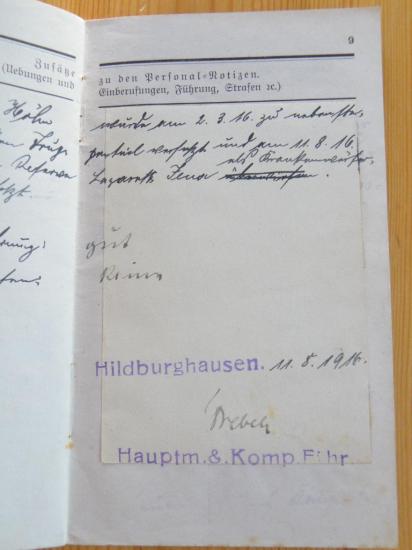 Zusätze
(Uebungen und
Höhn
Reserve
9
zu den Personal-Notizen.
Einberufungen, Führung, Strafen ꝛc.)
wurde am 2. 3. 16. zu
versetzt und am 11. 8. 16.
als Krankenwärter,
Lazarett Jena überwiesen.
gut
Keine
Hildburghausen. 11. 8. 1916.
Hauptm. & Komp. Führ.